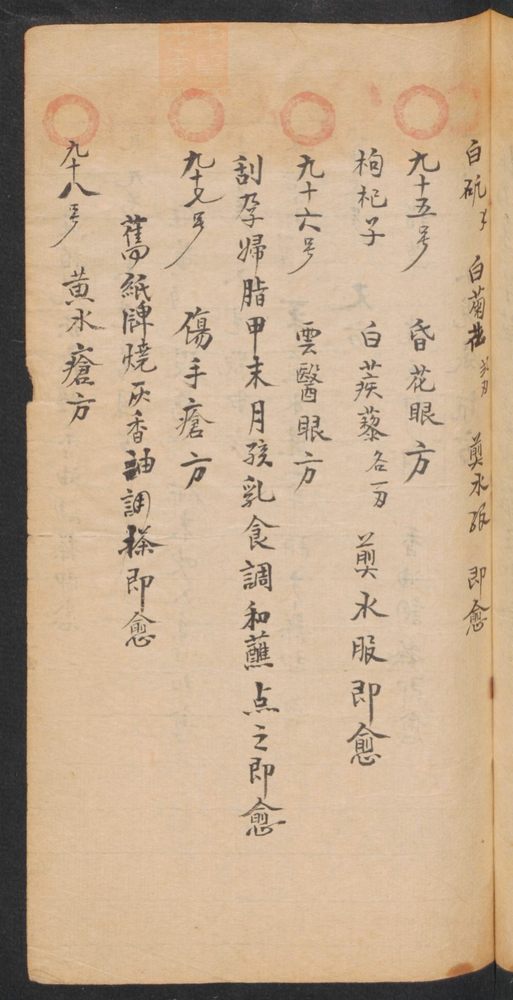 白矾 白菊花 煎水 即愈
九十五号 昏花眼方
枸杞子 白蒺藜各一 煎水服即愈
九十六号 雲醫眼方
刮孕婦脂甲末月孩乳食調和蘸点之即愈
九十七号 傷手瘡方
舊紙牌燒灰香油調搽即愈
九十八号 黄水瘡方